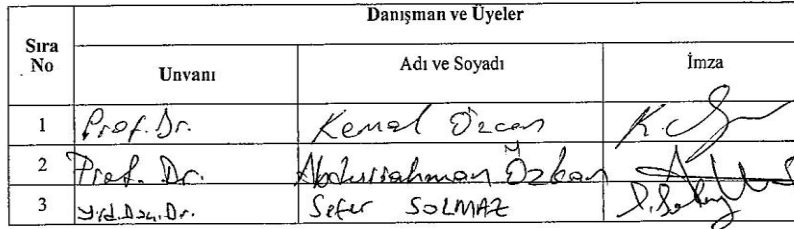 Danışman ve Üyeler
Sıra No Unvanı Adı ve Soyadı İmza
1 Prof. Dr. Kemal Özcan
2 Prof. Dr. Abdurrahman Özkan
3 Yrd. Doç. Dr. Sefer SOLMAZ